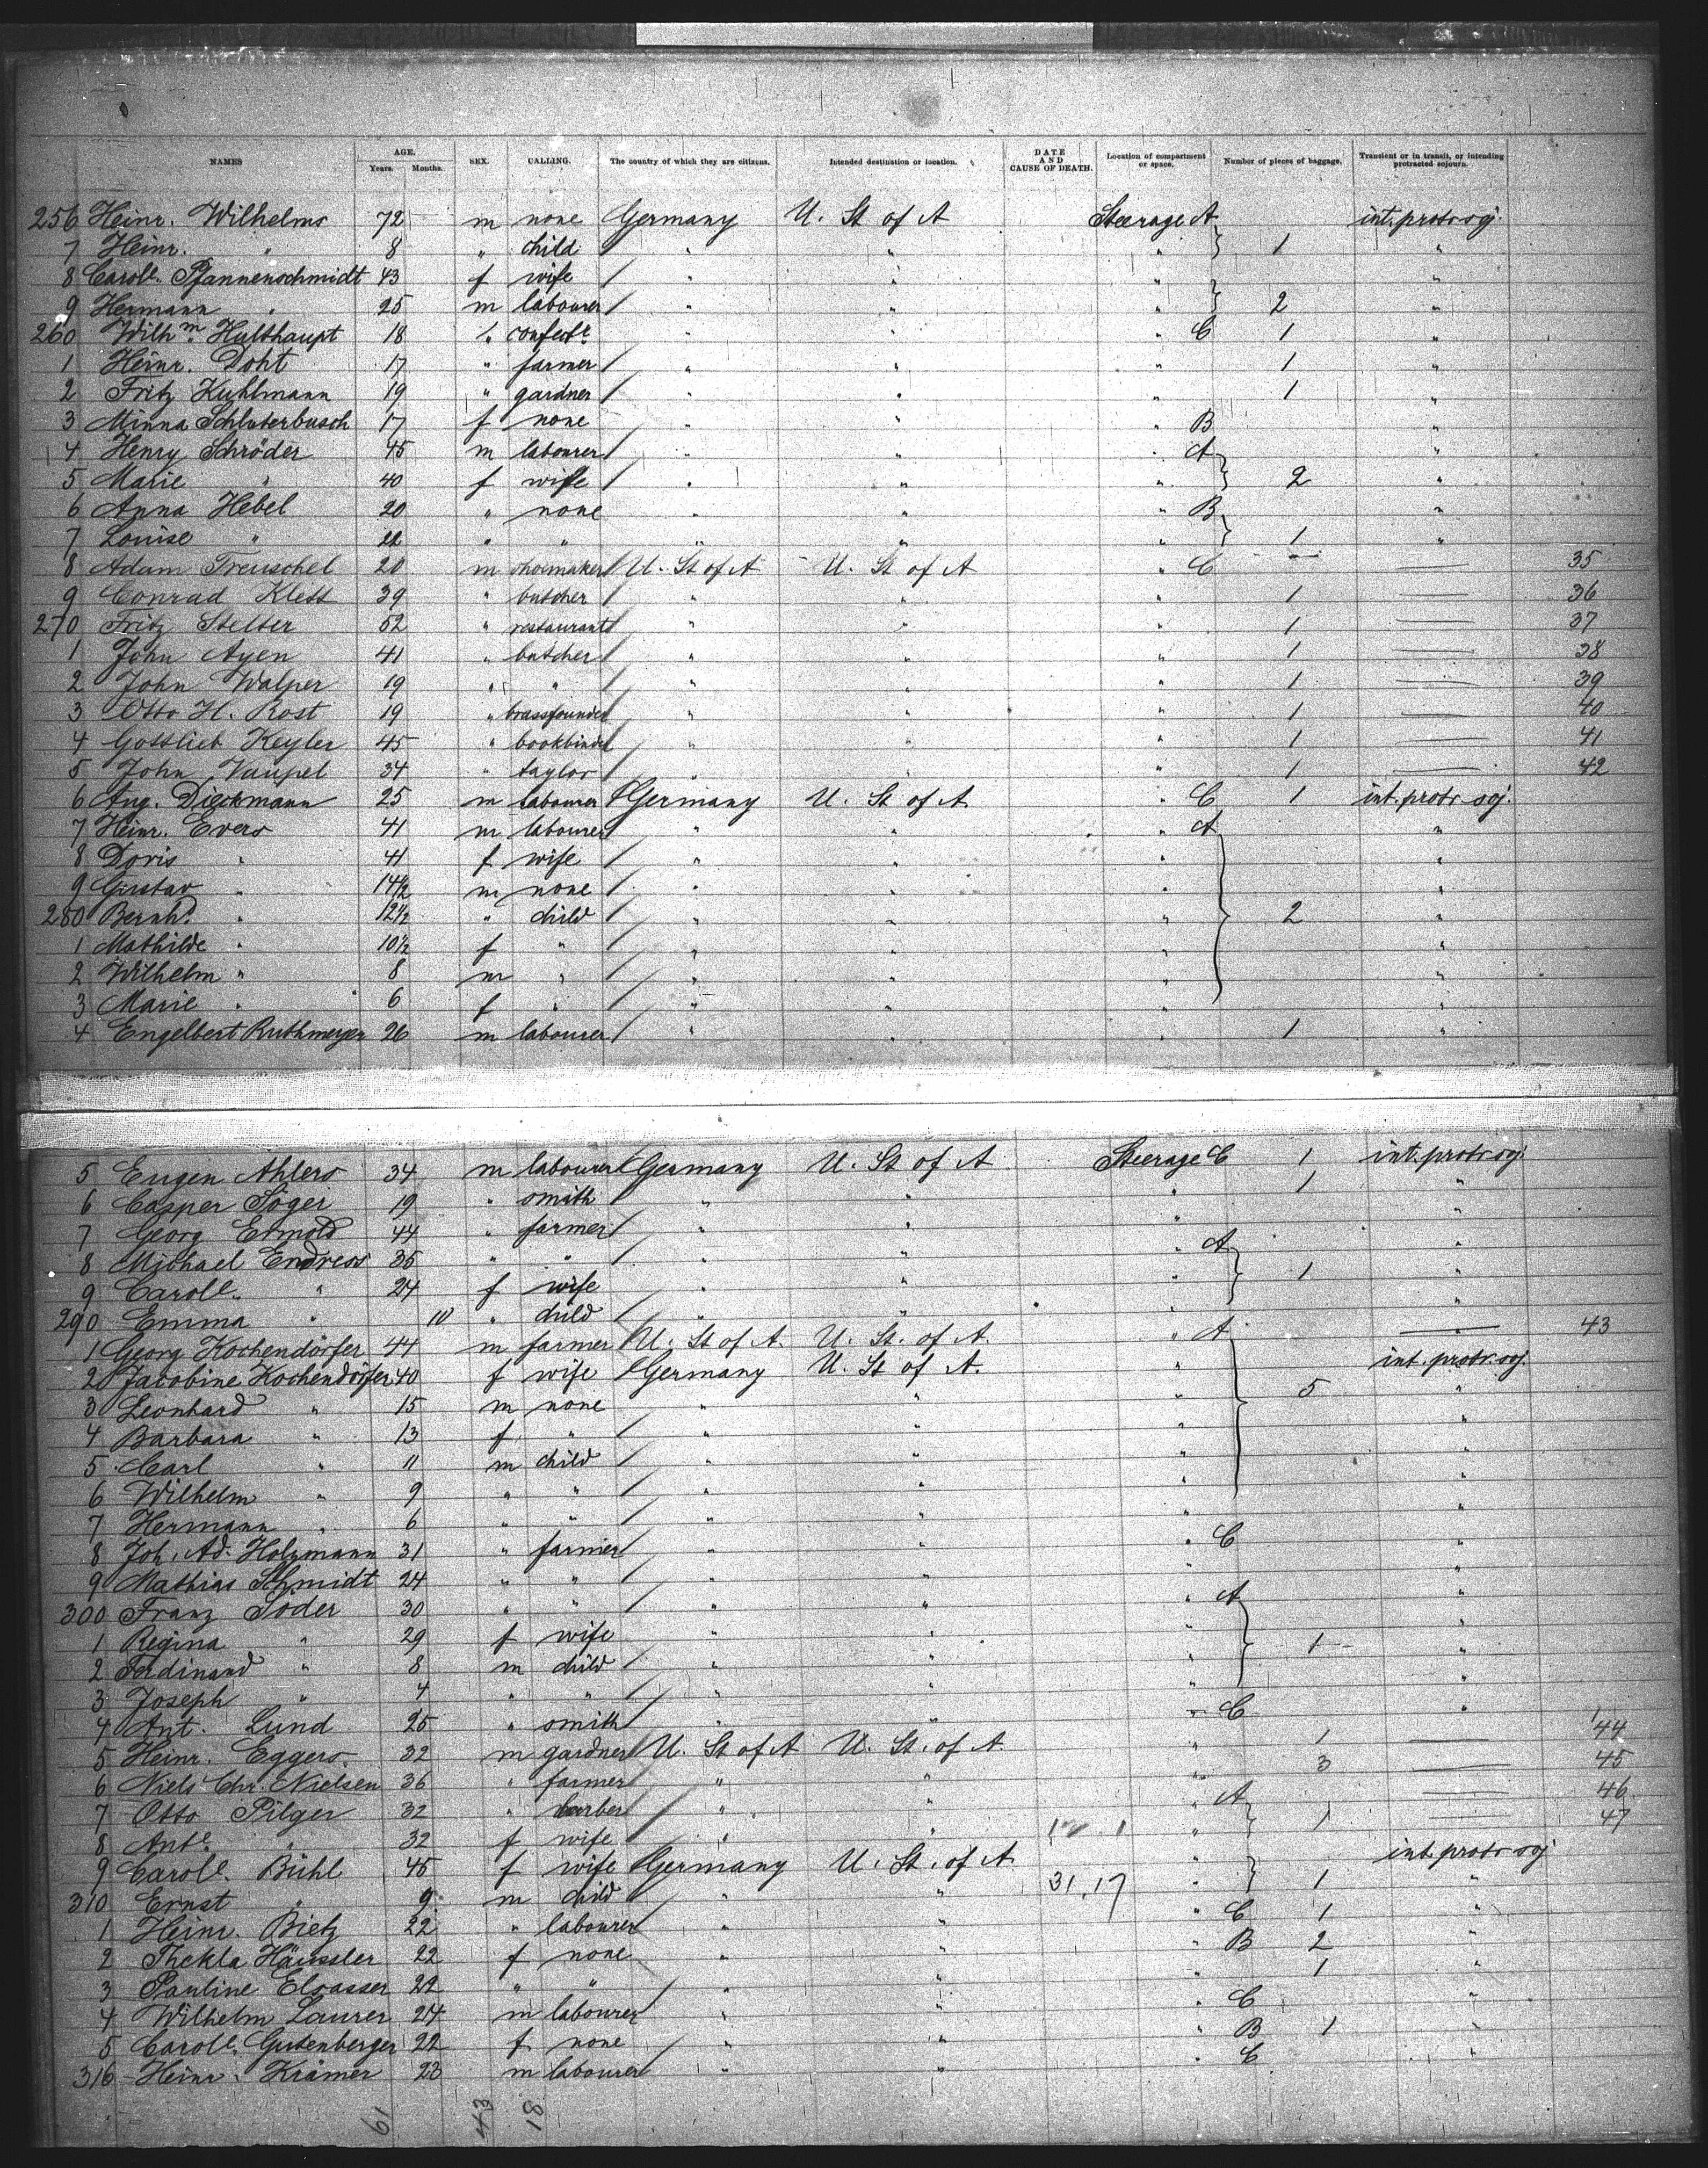 NAMES AGE. Years. Months. SEX. CALLING. The country of which they are citizens. Intended destination or location. DATE AND CAUSE OF DEATH. Location of compartment or space. Number of pieces of baggage. Transient or in transit, or intending protracted sojourn.
256 Heinr. Wilhelms 72 m none Germany U. St of A Steerage A int. protr soj.
7 Heinr. " 8 " child " " " 1 "
8 Caroll. Pfannenschmidt 43 f wife " " " "
9 Hermann " 25 m labourer " " " 2 "
260 Wilhm. Hulthaupt 18 " confectr " " " C 1 "
1 Heinr. Doht 17 " farmer " " " 1 "
2 Fritz Kuhlmann 19 " gardner " " " 1 "
3 Minna Schluterbusch 17 f none " " " B "
4 Henry Schröder 45 m labourer " " " A "
5 Marie " 40 f wife " " " 2 "
6 Anna Hebel 20 " none " " " B "
7 Louise " 22 " " " " " 1 "
8 Adam Treuschel 20 m shoemaker U. St of A U. St of A " C — — 35
9 Conrad Klett 39 " butcher " " " 1 — 36
270 Fritz Stelter 52 " restaurant " " " 1 — 37
1 John Ayen 41 " butcher " " " 1 — 38
2 John Walper 19 " " " " " 1 — 39
3 Otto H. Rost 19 " brassfounder " " " 1 — 40
4 Gottlieb Keyler 45 " bookbinder " " " 1 — 41
5 John Vaupel 34 " taylor " " " 1 — 42
6 Aug. Dieckmann 25 m labourer Germany U. St of A " C 1 int. protr soj.
7 Heinr. Evers 41 m labourer " " " A "
8 Doris " 41 f wife " " " "
9 Gustav " 14½ m none " " " "
280 Bernhd. " 12½ " child " " " 2 "
1 Mathilde " 10½ f " " " " "
2 Wilhelm " 8 m " " " " "
3 Marie " 6 f " " " " "
4 Engelbert Ruthmeyer 26 m labourer " " " 1 "
5 Eugen Ahlers 34 m labourer Germany U. St of A Steerage C 1 int. protr soj.
6 Casper Jöger 19 " smith " " " 1 "
7 Georg Etmold 44 " farmer " " " "
8 Michael Endress 35 " " " " " A "
9 Caroll. " 24 f wife " " " 1 "
290 Emma " 10 " child " " "
1 Georg Kochendörfer 44 m farmer U. St of A U. St. of A. " A — 43
2 Jacobine Kochendörfer 40 f wife Germany U. St of A. " int. protr. soj.
3 Leonhard " 15 m none " " " 5 "
4 Barbara " 13 f " " " " "
5 Carl " 11 m child " " " "
6 Wilhelm " 9 " " " " " "
7 Hermann " 6 " " " " " "
8 Joh. Ad. Holzmann 31 " farmer " " " C "
9 Mathias Schmidt 24 " " " " " "
300 Franz Soder 30 " " " " " A "
1 Regina " 29 f wife " " " "
2 Ferdinand " 8 m child " " " 1 "
3 Joseph " 4 " " " " " "
4 Ant. Lund 25 " smith " " " C "
5 Heinr. Eggers 32 m gardner U. St of A U. St. of A. " 1 — 44
6 Niels Chr. Nielsen 36 " farmer " " " 3 — 45
7 Otto Pilger 32 " barber " " " A — 46
8 Ante. " 32 f wife " " " 1 — 47
9 Caroll. Bühl 45 f wife Germany U. St. of A " int. protr soj
310 Ernst " 9 m child " " 31.17 " 1 "
1 Heinr. Bietz 22 " labourer " " " C 1 "
2 Thekla Häussler 22 f none " " " B 2 "
3 Pauline Elsasser 22 " " " " " 1 "
4 Wilhelm Laurer 24 m labourer " " " C "
5 Caroll. Gutenberger 22 f none " " " B 1 "
316 Heinr. Krämer 23 m labourer " " " C "
61 43 18